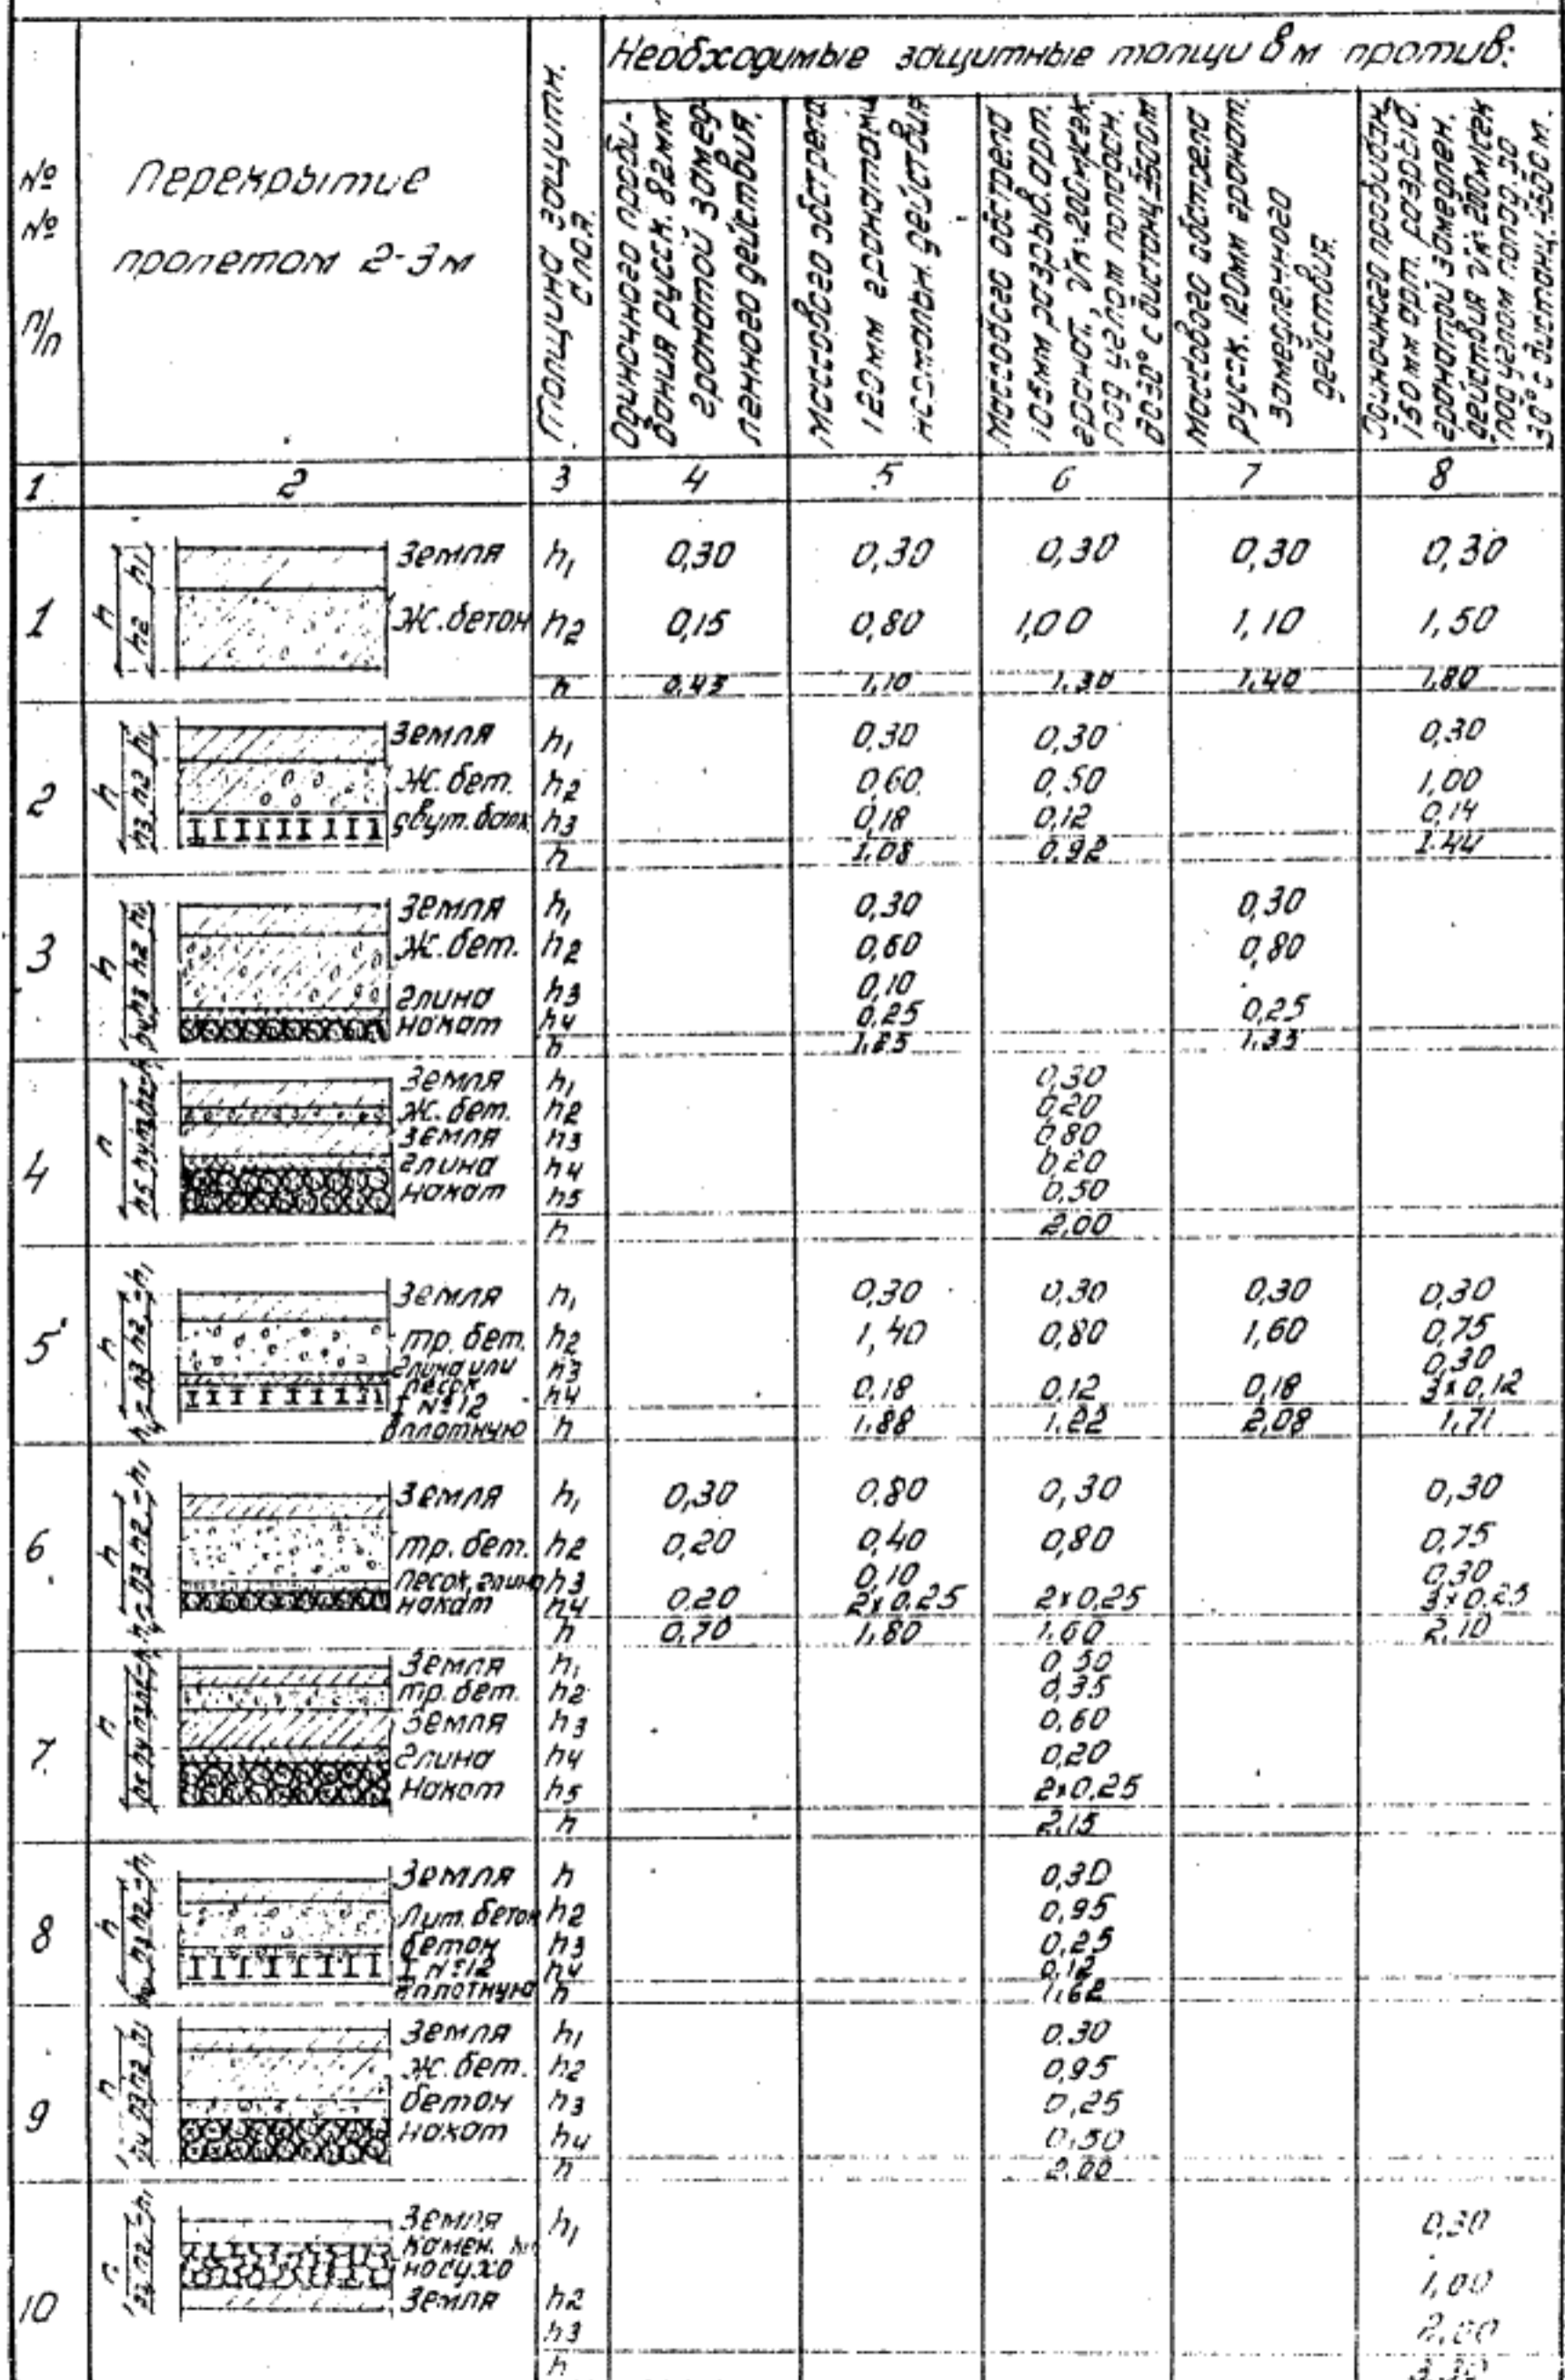 Необходимые защитные толщи в м против:
№ № п/п
Перекрытие
пролетом 2-3 м
Толщина защитн. слоя.
Одиночного проби-
вания русск. 82 мм
гранатой замед-
ленного действия.
Массового обстрела
120 мм гранатами
действия
Массового обстрела
105 мм разрыв. арт.
гранат, Vк=200 м/сек.
под углом попадан.
до 30° с дистанц. 3500 м
Массового обстрела
русск. 120 мм гранат.
замедленного
действия.
Одиночного пробиван.
150 мм арт. разрыв.
гранатой замедлен.
действия Vк=200 м/сек
под углом попад. до
30° с дистанц.
1 2 3 4 5 6 7 8
1 h h2 h1
Земля h1 0,30 0,30 0,30 0,30 0,30
Ж. бетон h2 0,15 0,80 1,00 1,10 1,50
h 0,45 1,10 1,30 1,40 1,80
2 h h3 h2 h1
Земля h1 0,30 0,30 0,30
Ж. бет. h2 0,60 0,50 1,00
двут. балк. h3 0,18 0,12 0,14
h 1,08 0,92 1.44
3 h h4 h3 h2 h1
Земля h1 0,30 0,30
Ж. бет. h2 0,60 0,80
глина h3 0,10
накат h4 0,25 0,25
h 1,25 1,35
4 h h5 h4 h3 h2 h1
Земля h1 0,30
Ж. бет. h2 0,20
Земля h3 0,80
глина h4 0,20
накат h5 0,50
h 2,00
5 h h4 h3 h2 h1
Земля h1 0,30 0,30 0,30 0,30
тр. бет. h2 1,40 0,80 1,60 0,75
глина или h3 0,30
песок
I №12 h4 0,18 0,12 0,18 3х0,12
вплотную h 1,88 1,22 2,08 1,71
6 h h4 h3 h2 h1
Земля h1 0,30 0,80 0,30 0,30
тр. бет. h2 0,20 0,40 0,80 0,75
песок, глина h3 0,10 0,30
накат h4 0,20 2х0,25 2х0,25 3х0,25
h 0,70 1,80 1,60 2,10
7. h h5 h4 h3 h2 h1
Земля h1 0,50
тр. бет. h2 0,35
Земля h3 0,60
глина h4 0,20
Накат h5 2х0,25
h 2,15
8 h h4 h3 h2 h1
Земля h 0,30
Лит. бетон h2 0,95
бетон h3 0,25
I №12 h4 0,12
вплотную h 1,62
9 h h4 h3 h2 h1
Земля h1 0.30
Ж. бет. h2 0,95
бетон h3 0,25
накат h4 0,50
h 2,00
10 h h3 h2 h1
Земля h1 0,30
камен.
насухо 1,00
Земля h2
h3 2,00
h